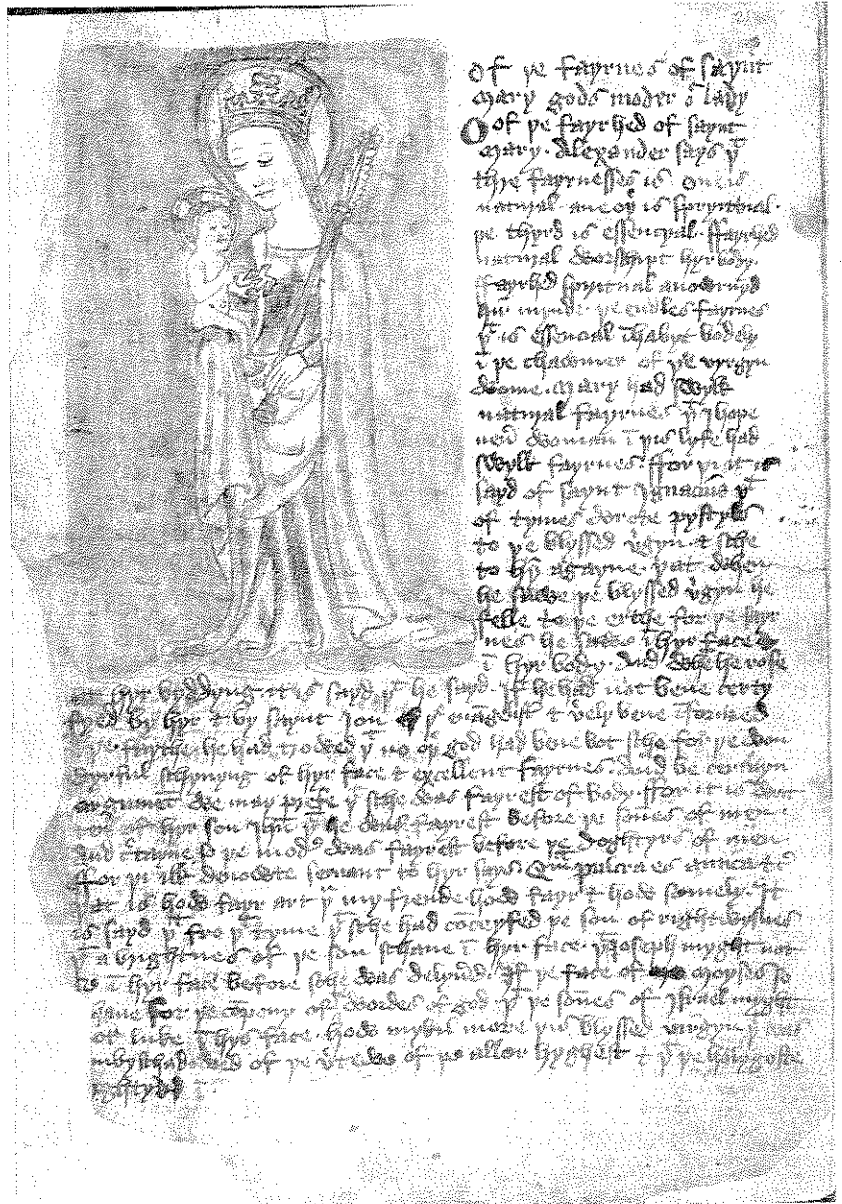 Of þe fayrnes of saynt
Mary gods moder & lady
Of þe fayrhed of saynt
Mary. Alexander says þt
thre fayrnesses is. One is
natural. anoþr is spyritual.
þe thyrd is essencyal. ffayrhed
natural worschipt hyr body.
ffayrhed spyritual anowrnyd
hir mynde. þe endles fayrnes
þt is essencial ī habyt bodely
ī þe chawmer of þe vyrgyn
wome. Mary had swylk
natural fayrnes þt I hope
neur woman ī þis lyfe had
swylk fayrnes. ffor þi it is
sayd of saynt Ignacius þt
of tymes wrote pystyls
to þe blyssed vgyn & sche
to hym agayne. þat when
he sawe þe blyssed vgyn he
felle to þe erthe for þe fayr
nes he sawe ī hyr face &
ī hyr body. And whē he rose
at hyr byddyng it is sayd þt he sayd. if he had not bene certy
fyed by hyr & by saynt Jon þe euāgelist & vely bene īformed
ī þe faythe. he had trowed þt no oþr god had bene bot sche for þe won
dyrful schynyng of hyr face & excellent fayrnes. And be certayn
argument we may prefe þt sche was fayrest of body. ffor it is
of hyr son ihu þt he was fayrest before þe sones of men.
And so þe modr was fayrest before þe doghtyrs of men
for þi devowte servant to hyr says. Qm pulcra es amica
þat is howe fayr art þu my frende howe fayr & howe semely. It
is sayd þt fro þt tyme þt sche had cōceyfed þe son of rightwysnes
þt a brightnes of þe son schane ī hyr face. þt Joseph myght not
ī hyr face before sche was delyued. If þe face of Moyses so
schane for þe cōpeny of wordes of god þt þe sones of Israel myght
not luke ī hys face. howe mykil more þis blyssed virgyn þt was
vmbyschadowed of þe vtewe of þe allor hyghest & þt þe haly goste
restyd ī.